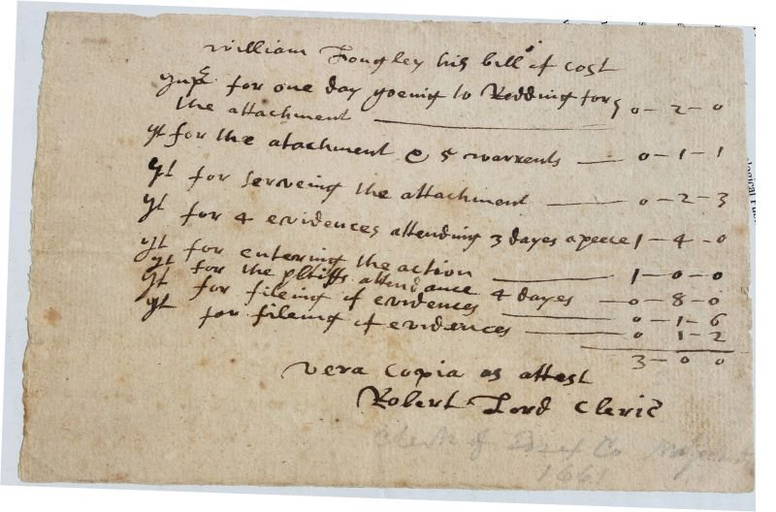 William Longley his bill of cost
Imp for one day goeing to Redding for
the attachment 0-2-0
It for the atachment & 5 warrents 0-1-1
It for serveing the attachment 0-2-3
It for 4 evidences attending 3 dayes apeece 1-4-0
It for entering the action 1-0-0
It for the pltiffs attendance 4 dayes 0-8-0
It for fileing of evidences 0-1-6
It for fileing of evidences 0 1-2
3-0 0
vera Copia as attest
Robert Lord Cleric
Clerk of Essex Co
1661